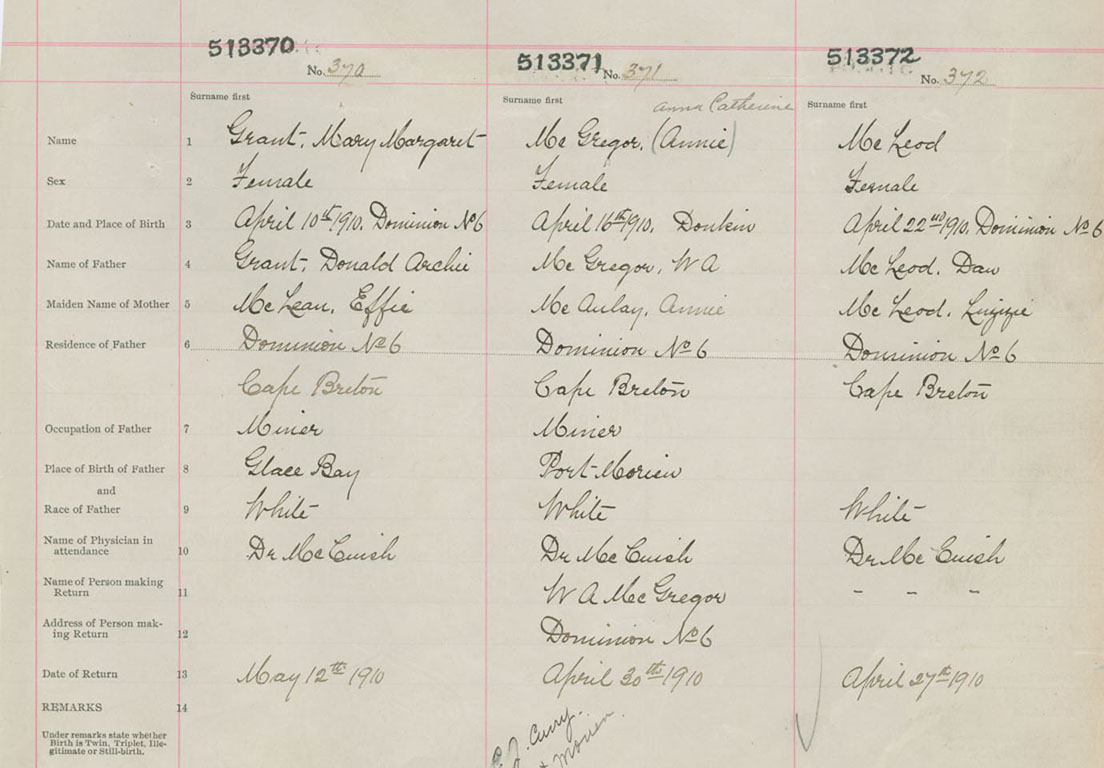 513370 513371 513372
No. 370 No. 371 No. 372
Surname first Surname first Anna Catherine Surname first
Name 1 Grant, Mary Margaret McGregor, (Annie) McLeod
Sex 2 Female Female Female
Date and Place of Birth 3 April 10th 1910, Dominion No 6 April 16th 1910, Donkin April 22nd 1910, Dominion No 6
Name of Father 4 Grant, Donald Archie McGregor, W A McLeod, Dan
Maiden Name of Mother 5 McLean, Effie McAulay, Annie McLeod, Lizzie
Residence of Father 6 Dominion No 6 Dominion No 6 Dominion No 6
Cape Breton Cape Breton Cape Breton
Occupation of Father 7 Miner Miner
Place of Birth of Father 8 Glace Bay Port Morien
and
Race of Father 9 White White White
Name of Physician in
attendance 10 Dr McCuish Dr McCuish Dr McCuish
Name of Person making
Return 11 W A McGregor - - -
Address of Person mak-
ing Return 12 Dominion No 6
Date of Return 13 May 12th 1910 April 30th 1910 April 27th 1910
REMARKS 14
Under remarks state whether
Birth is Twin, Triplet, Ille-
gitimate or Still-birth.
Curry.
Morien